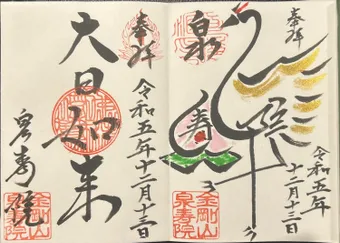 奉拝
泉
寿
令和五年
十二月十三日
金剛山
泉寿院
奉拝
大日如来
令和五年十二月十三日
泉寿院
金剛山
泉寿院